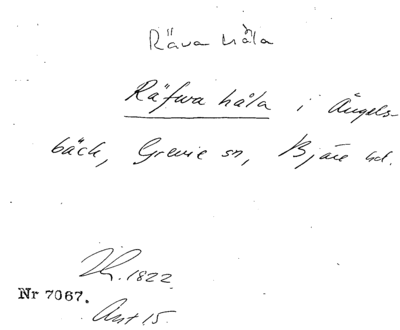 Räva håla
Räfwa håla i Ängels-
bäck, Grevie sn, Bjäre hd.
1822.
Nr 7067.
Ant 15.